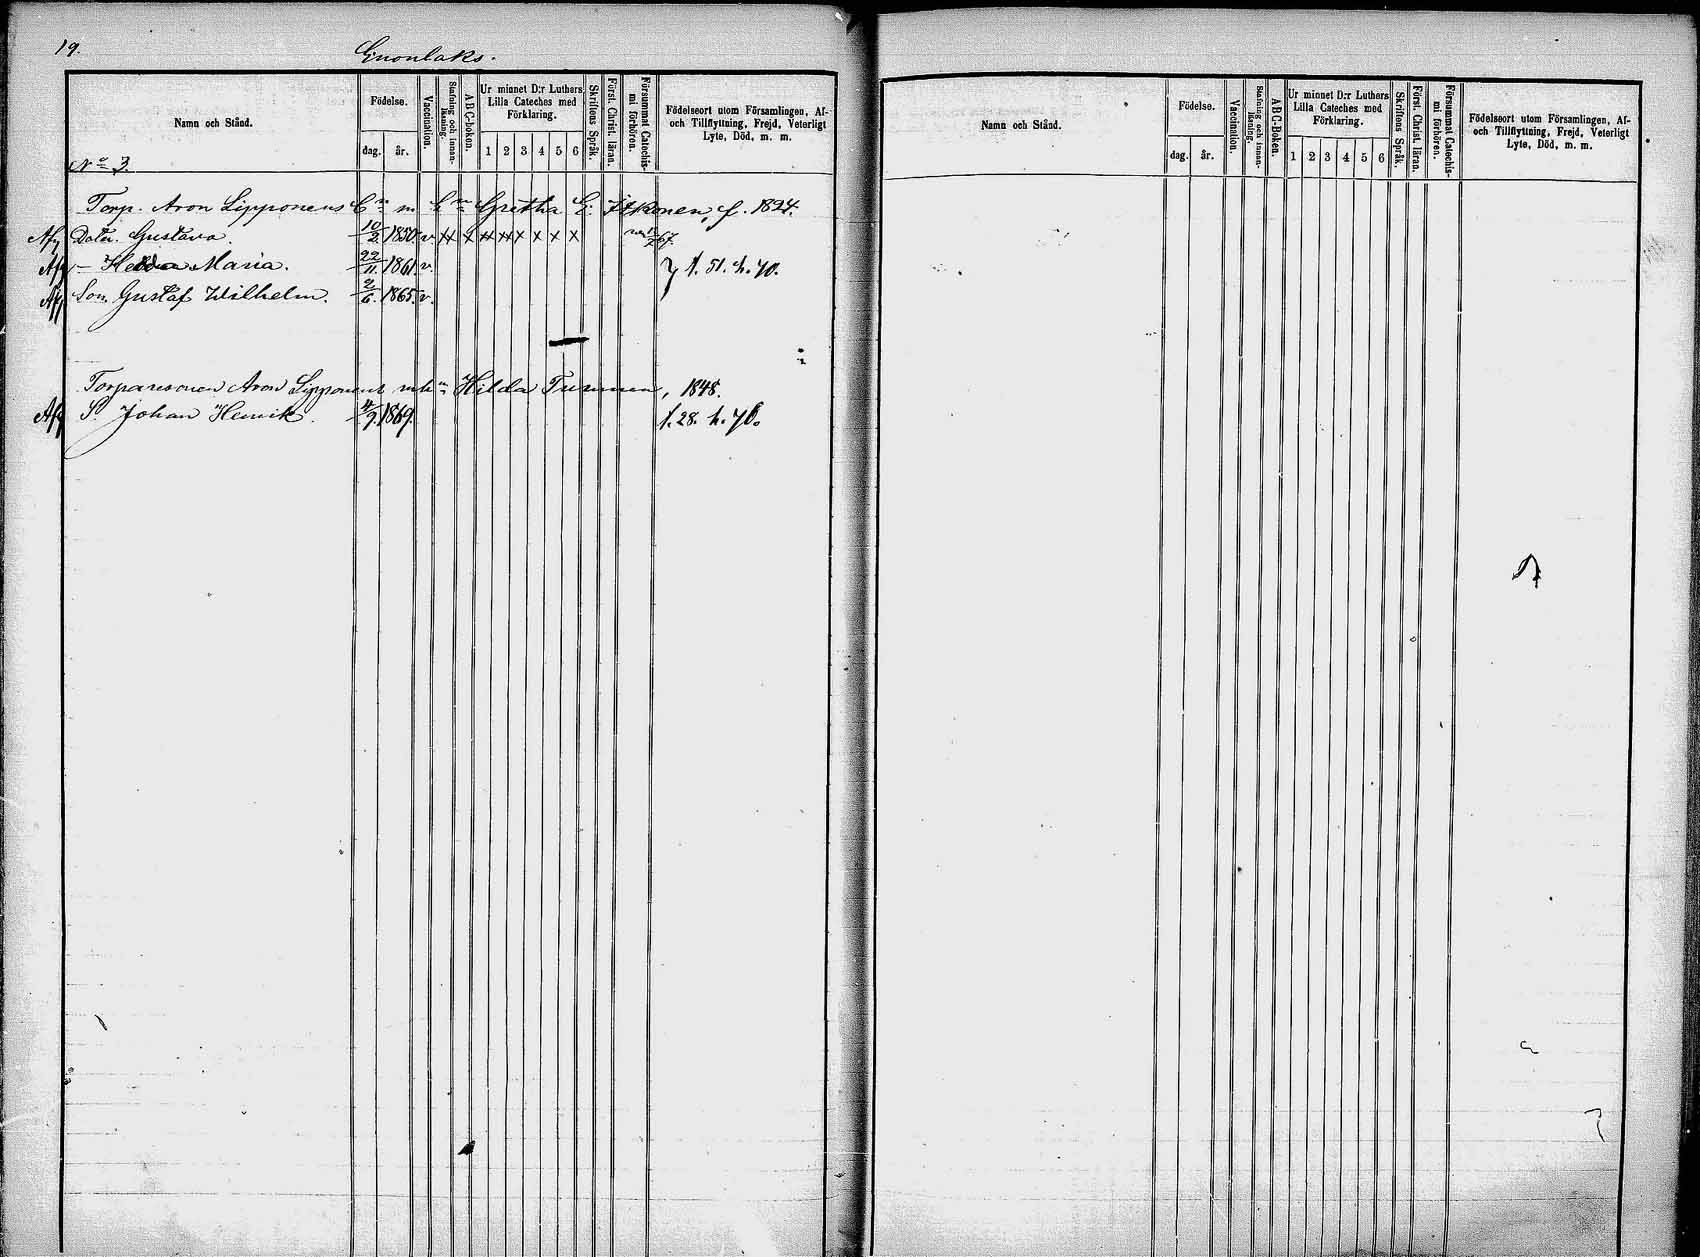 19.
Enonlaks.
Namn och Stånd.
Födelse.
dag.
år.
Vaccination.
Stafning och innan-läsning.
A B C-boken.
Ur minnet D:r Luthers
Lilla Cateches med
Förklaring.
1 2 3 4 5 6
Skriftens Språk.
Först. Christ. läran.
Försummat Catechis-
mi förhören.
Födelseort utom Församlingen, Af-
och Tillflyttning, Frejd, Veterligt
Lyte, Död, m. m.
No 3.
Torp. Aron Lipponens Bn m hm Gretha E. Itkonen, f. 1824.
Afg Dotn. Gustava. 10/2. 1850. v. x x x x x x x x 67.
Afg – Hedda Maria. 22/11. 1861. v. } f. 51. h. 70.
Afg Son. Gustaf Wilhelm. 2/6. 1865. v.
Torparesonen Aron Lipponens m h n Hilda, 1848.
Afg S. Johan Henrik. 4/9. 1869. f. 28. h. 70.
Namn och Stånd.
Födelse.
dag.
år.
Vaccination.
Stafning och innan-läsning.
A B C-Boken.
Ur minnet D:r Luthers
Lilla Cateches med
Förklaring.
1 2 3 4 5 6
Skriftens Språk.
Först. Christ. läran.
Försummat Catechis-
mi förhören.
Födelseort utom Församlingen, Af-
och Tillflyttning, Frejd, Veterligt
Lyte, Död, m. m.